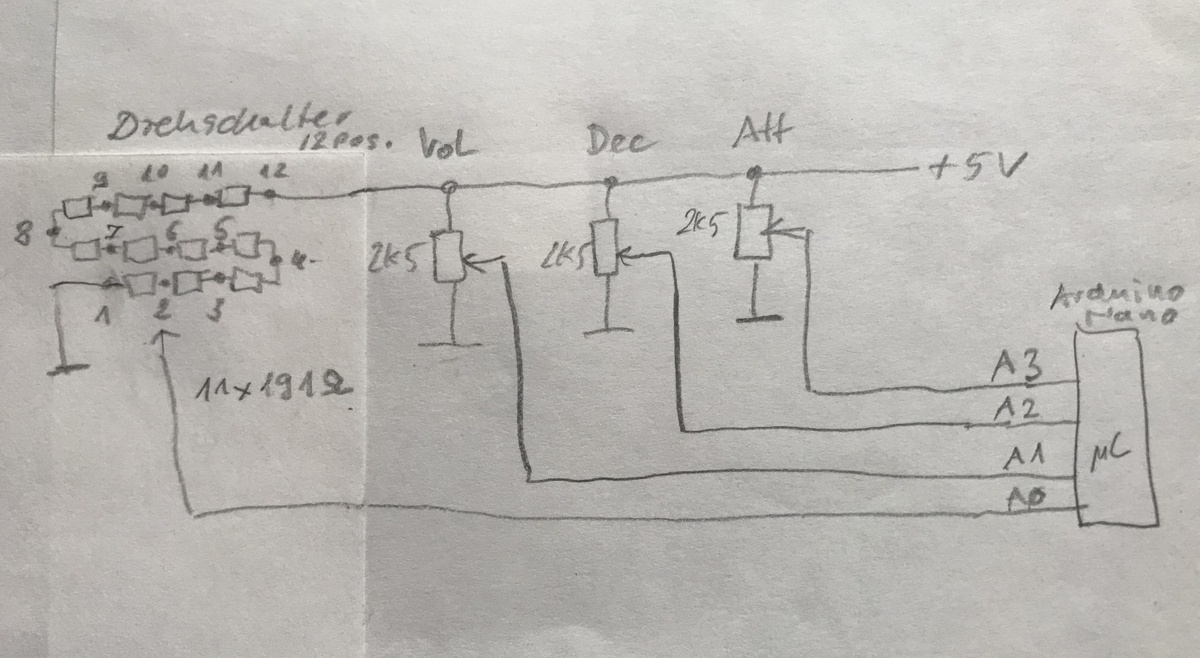 Drehschalter
12 Pos.
Vol
Dec
Att
+5V
9 10 11 12
8
7 6 5
4
1 2 3
2k5
2k5
2k5
11x191Ω
Arduino
Nano
A3
A2
A1
A0
µC